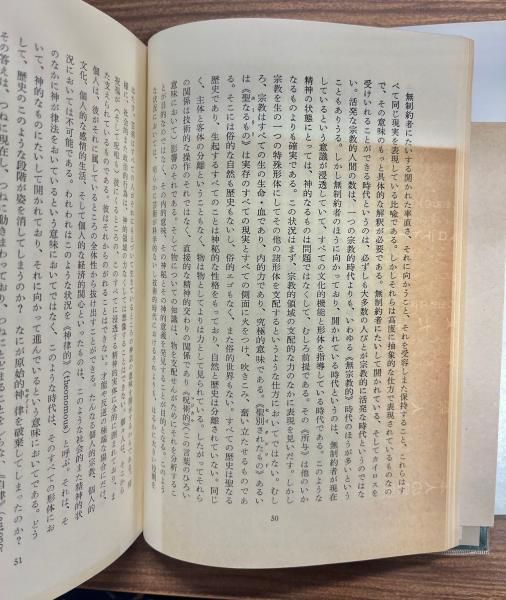 無制約者にたいする開かれた率直さ、それに向かうこと、それを受容しまた保持すること、これらはす
べて同じ現実を表現している比喩である。しかしそれらは高度に抽象的な仕方で表現されているものなの
で、その意味のもっと具体的な解釈が必要である。無制約者にたいして開かれている、そしてカイロスを
受けいれることができる時代というのは、必ずしも大多数の人びとが宗教的に活発な時代というのではな
い。活発な宗教的人間の数は、一つの宗教的時代よりも、いわゆる《無宗教的》時代のほうが多いという
こともありうる。しかし無制約者のほうに向かっており、開いている時代というのは、無制約者が現在
しているという意識が浸透していて、すべての文化的機能と形体を指導している時代である。このような
精神の状態にとっては、神的なるものは問題ではなくして、むしろ前提である。その《所与》は他のいか
なるものよりも確実である。この状況はまず、宗教的領域の支配的な力のなかに表現を見いだす。しかし
宗教を生の一つの特殊形体にしてその他の諸形体を支配するような仕方においてではない。むし
ろ、宗教はすべての生の生命・血であり、内的力であり、究極的意味である。《聖別されたもの》あるい
は《聖なるもの》は実存のすべての現実とすべての側面に火をつけ、吹きこみ、奮い立たせるものであ
る。そこには俗的な自然も歴史もないし、俗的エゴもなく、また俗的世界もない。すべての歴史は聖なる
歴史であり、生起するすべてのことは神秘的な性格をもっており、自然と歴史は分離されていない。同じ
く、主体と客体の分離ということもなく、物は物としてよりは力として見られている。したがってそれら
の関係は技術的な操作のそれではなく、直接的な精神的交わりの関係であり《呪術的》(この言葉のひろい
意味において)影響のそれである。そして物についての知識は、物を支配せんがためにそれを分析するこ
とが目的なのではなく、その内的意味、その神秘とその神的意義を発見することが目的となる。このよう
50
た支えられているものである。彼はそれからのがれることはできない。才能や反逆の極端な場合にだけ、
個人は、彼がそれに属しているところの全体性から抜け出すことができる。たんなる個人的宗教、個人的
文化、個人的な感情的生活、そして個人的な経済的関心といったものは、このような社会的また精神的状
況においては不可能である。われわれはこのような状況を《神律的》(theonomous)と呼ぶ。それは、そ
のなかに神が律法をよいているという意味においてではなく、このような時代は、そのすべての形体にお
いて、神的なものにたいして開かれており、それに向かって進んでいるという意味においてである。どう
して、歴史のこのような段階が姿を消してしまうのか? なにが原始的神律を破棄してしまったのか?
その答えは、つねに現在し、つねに動きまわっており、つねに
51